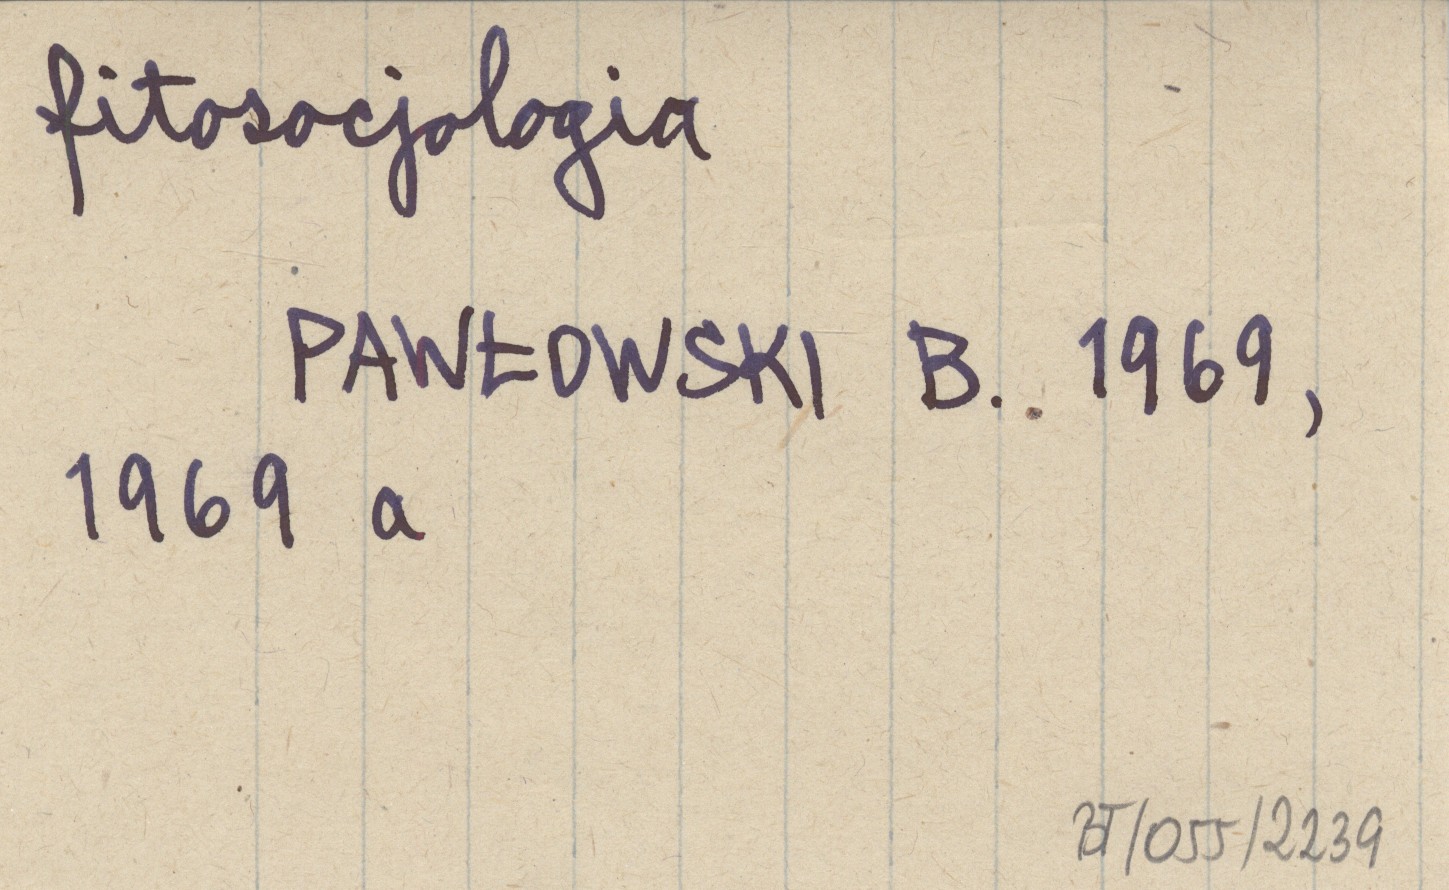 fitosocjologia
PAWŁOWSKI B. 1969,
1969 a
BT/055/2239